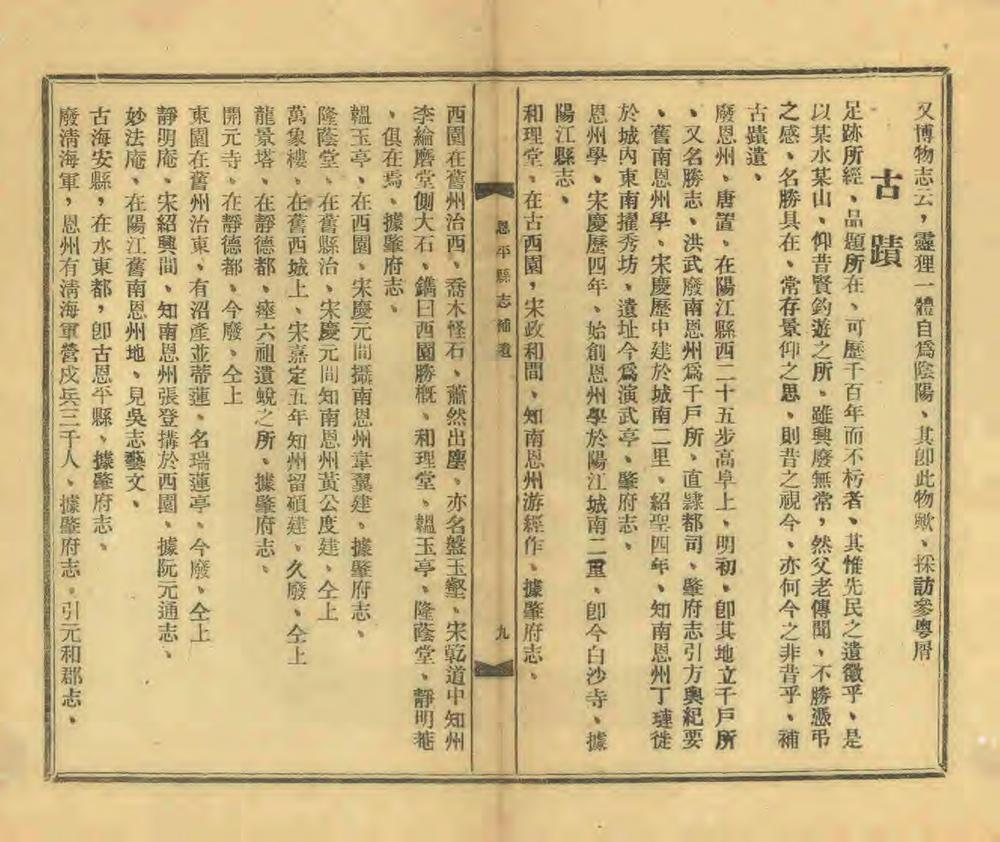 又博物志云，靈狸一體自爲陰陽、其卽此物歟、採訪參粵屑
古蹟
足跡所經、品題所在、可歷千百年而不朽者、其惟先民之遺徽乎、是
以某水某山、仰昔賢釣遊之所、雖興廢無常，然父老傳聞、不勝憑弔
之感、名勝具在、常存景仰之思、則昔之視今、亦何今之非昔乎、補
古蹟遺、
廢恩州、唐置、在陽江縣西二十五步高阜上、明初、卽其地立千戶所
、又名勝志、洪武廢南恩州爲千戶所、直隷都司、肇府志引方輿紀要
、舊南恩州學、宋慶歷中建於城南二里、紹聖四年、知南恩州丁璉徙
於城內東南擢秀坊、遺址今爲演武亭、肇府志、
恩州學、宋慶歷四年、始創恩州學於陽江城南二重、卽今白沙寺、據
陽江縣志、
和理堂、在古西園，宋政和間、知南恩州游經作、據肇府志、
恩平縣志補遺
九
西園在舊州治西、喬木怪石、蕭然出塵、亦名盤玉壑、宋乾道中知州
李綸磨堂側大石、鐫曰西園勝槪、和理堂、韞玉亭、隆蔭堂、靜明菴
、俱在焉、據肇府志、
韞玉亭、在西園、宋慶元間攝南恩州韋翼建、據肇府志、
隆蔭堂、在舊縣治、宋慶元間知南恩州黃公度建、仝上
萬象樓、在舊西城上、宋嘉定五年知州留碩建、久廢、仝上
龍景塔、在靜德都、瘞六祖遺蛻之所、據肇府志、
開元寺、在靜德都、今廢、仝上
東園在舊州治東、有沼產並蒂蓮、名瑞蓮亭、今廢、仝上
靜明庵、宋紹興間、知南恩州張登搆於西園、據阮元通志、
妙法庵、在陽江舊南恩州地、見吳志藝文、
古海安縣，在水東都，卽古恩平縣、據肇府志、
廢淸海軍，恩州有淸海軍營戍兵三千人、據肇府志、引元和郡志、